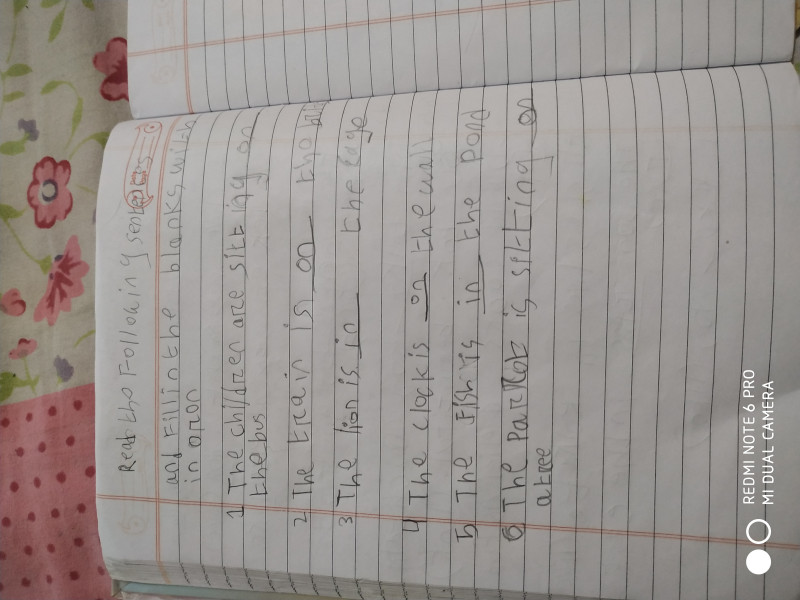 Read the Following sentences
and Fill in the blanks with
in or on
1 The children are sitting on
the bus
2 The train is on the
3 The lion is in the cage
4 The clock is on the wall
5 The Fish is in the Pond
6 The Parrot is sitting on
a tree
REDMI NOTE 6 PRO
MI DUAL CAMERA